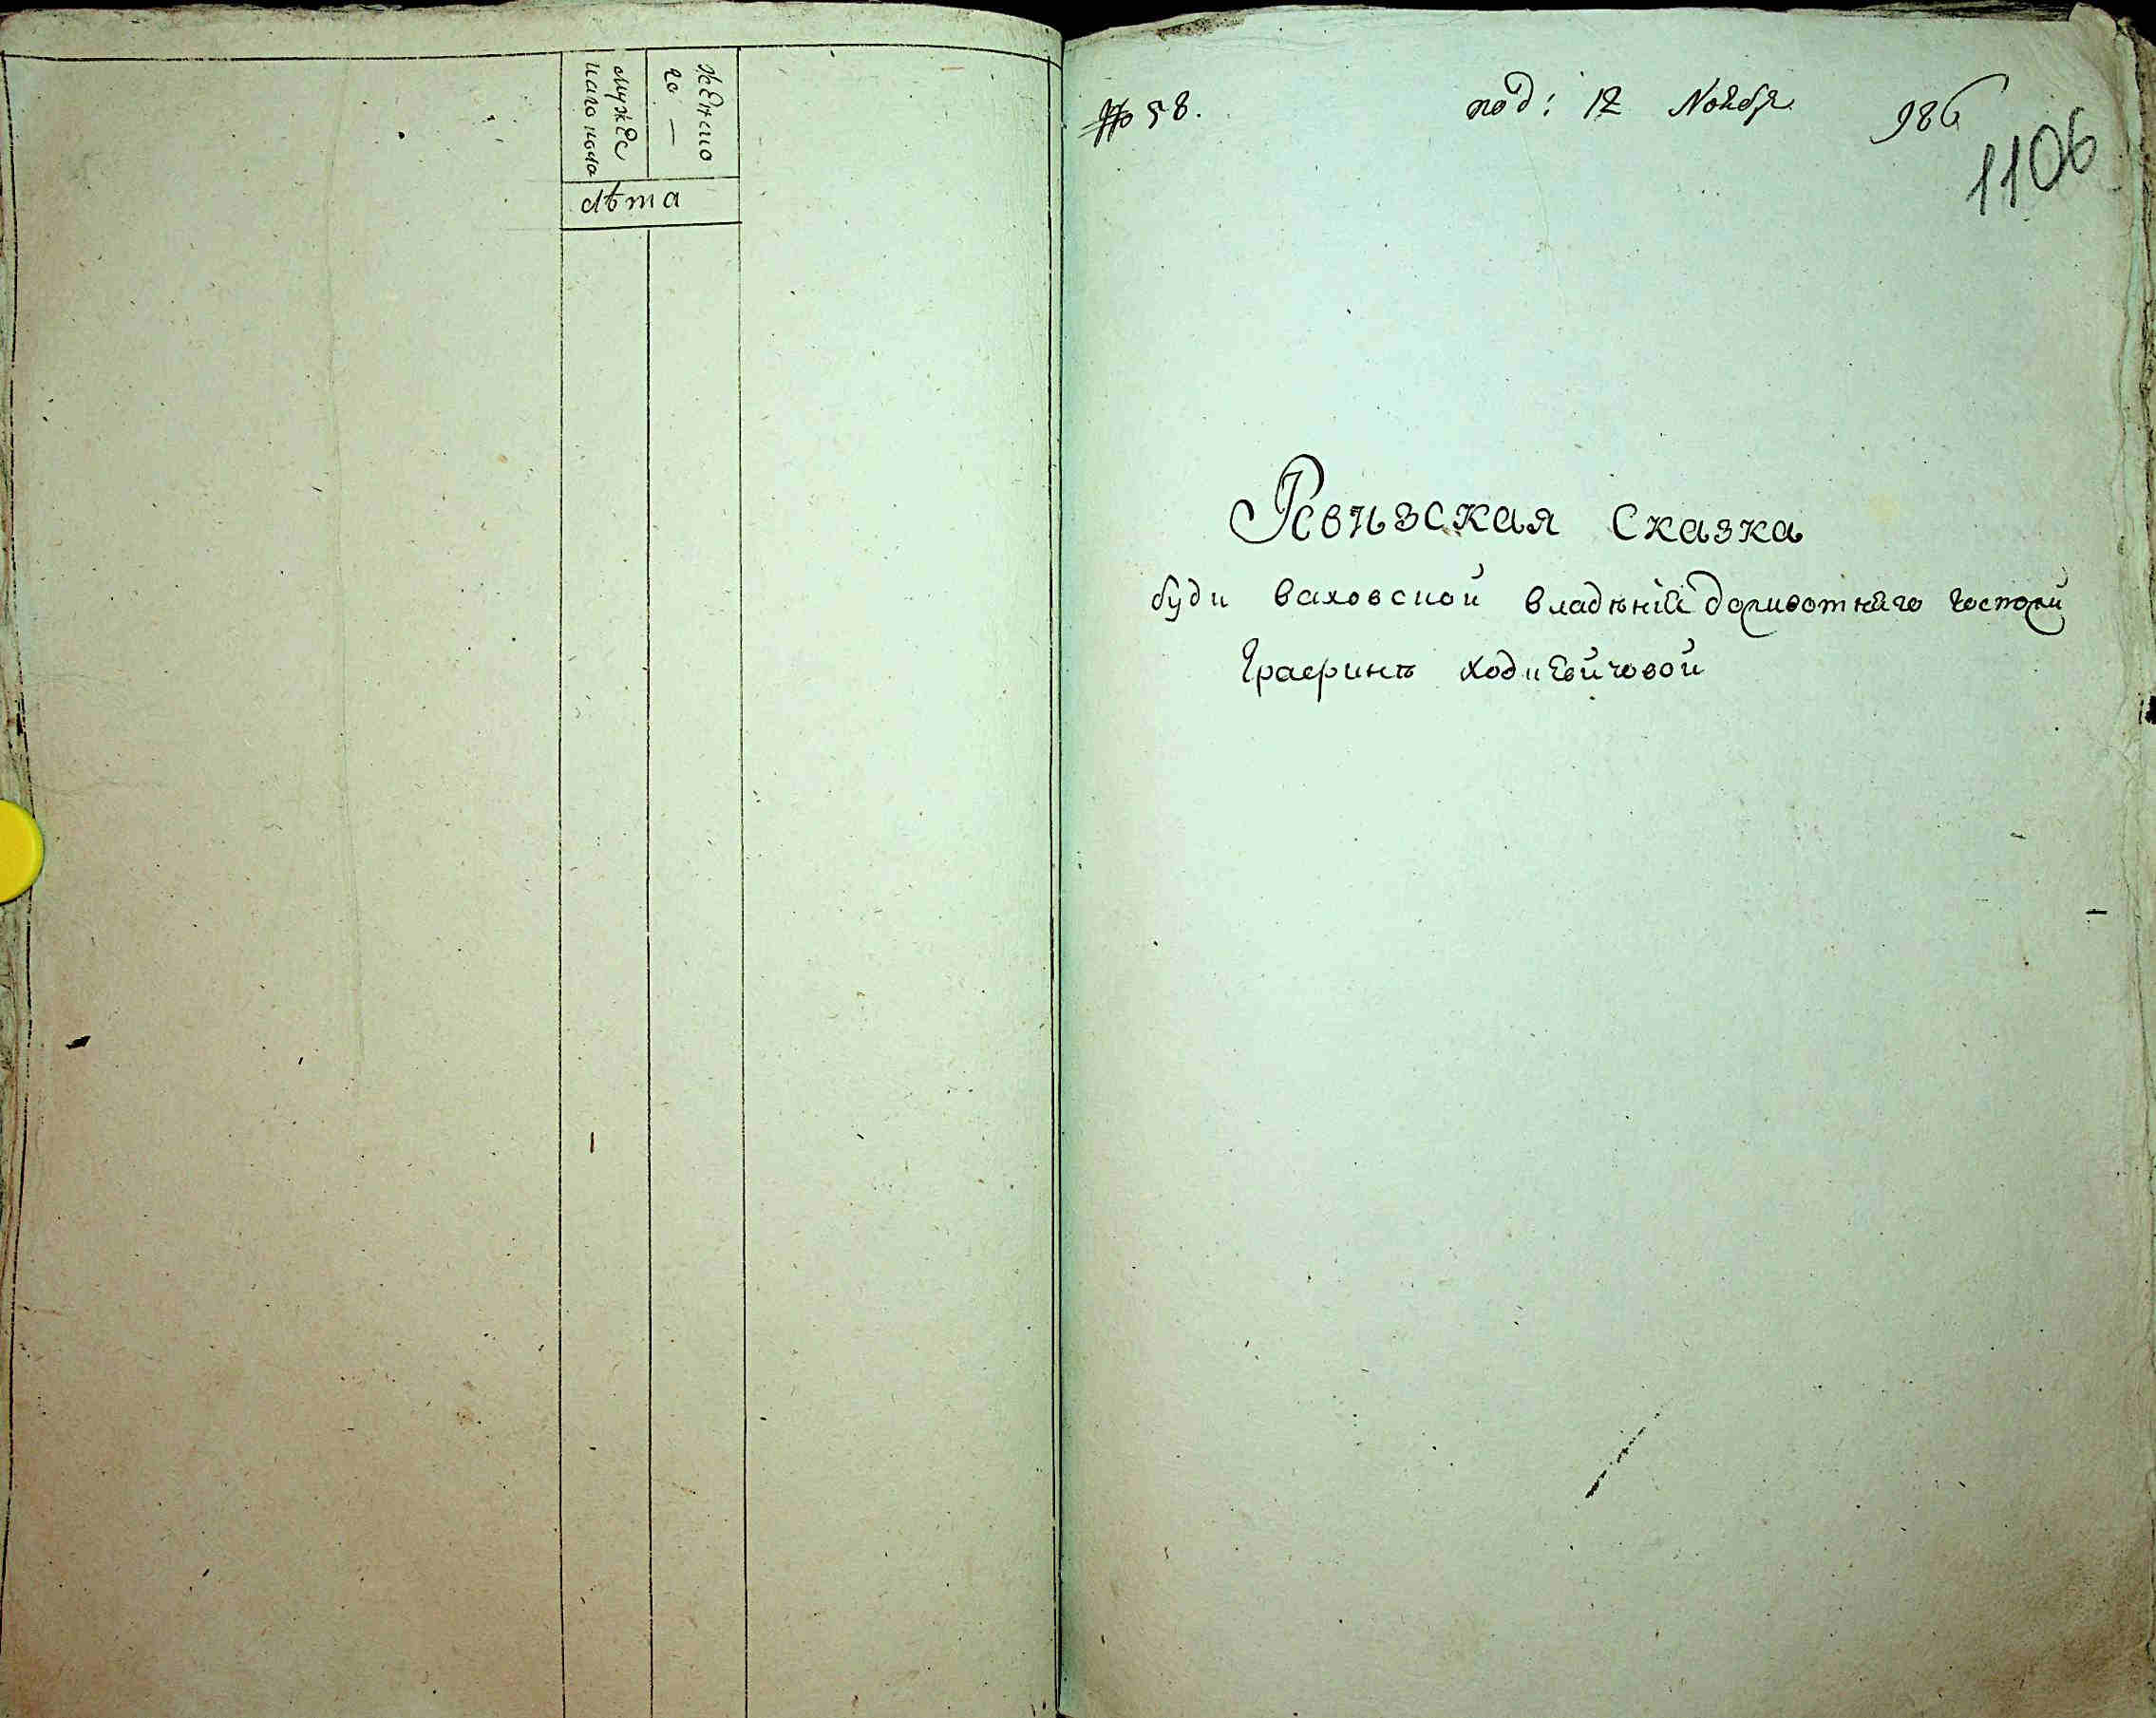 мужес
каго пола
женско
го —
лѣта
№ 58.
под: 12 Ноября
986
1106
Ревизская Сказка
будиВаховской владѣнiй доживотнаго
Графинѣ Ходкевичовой